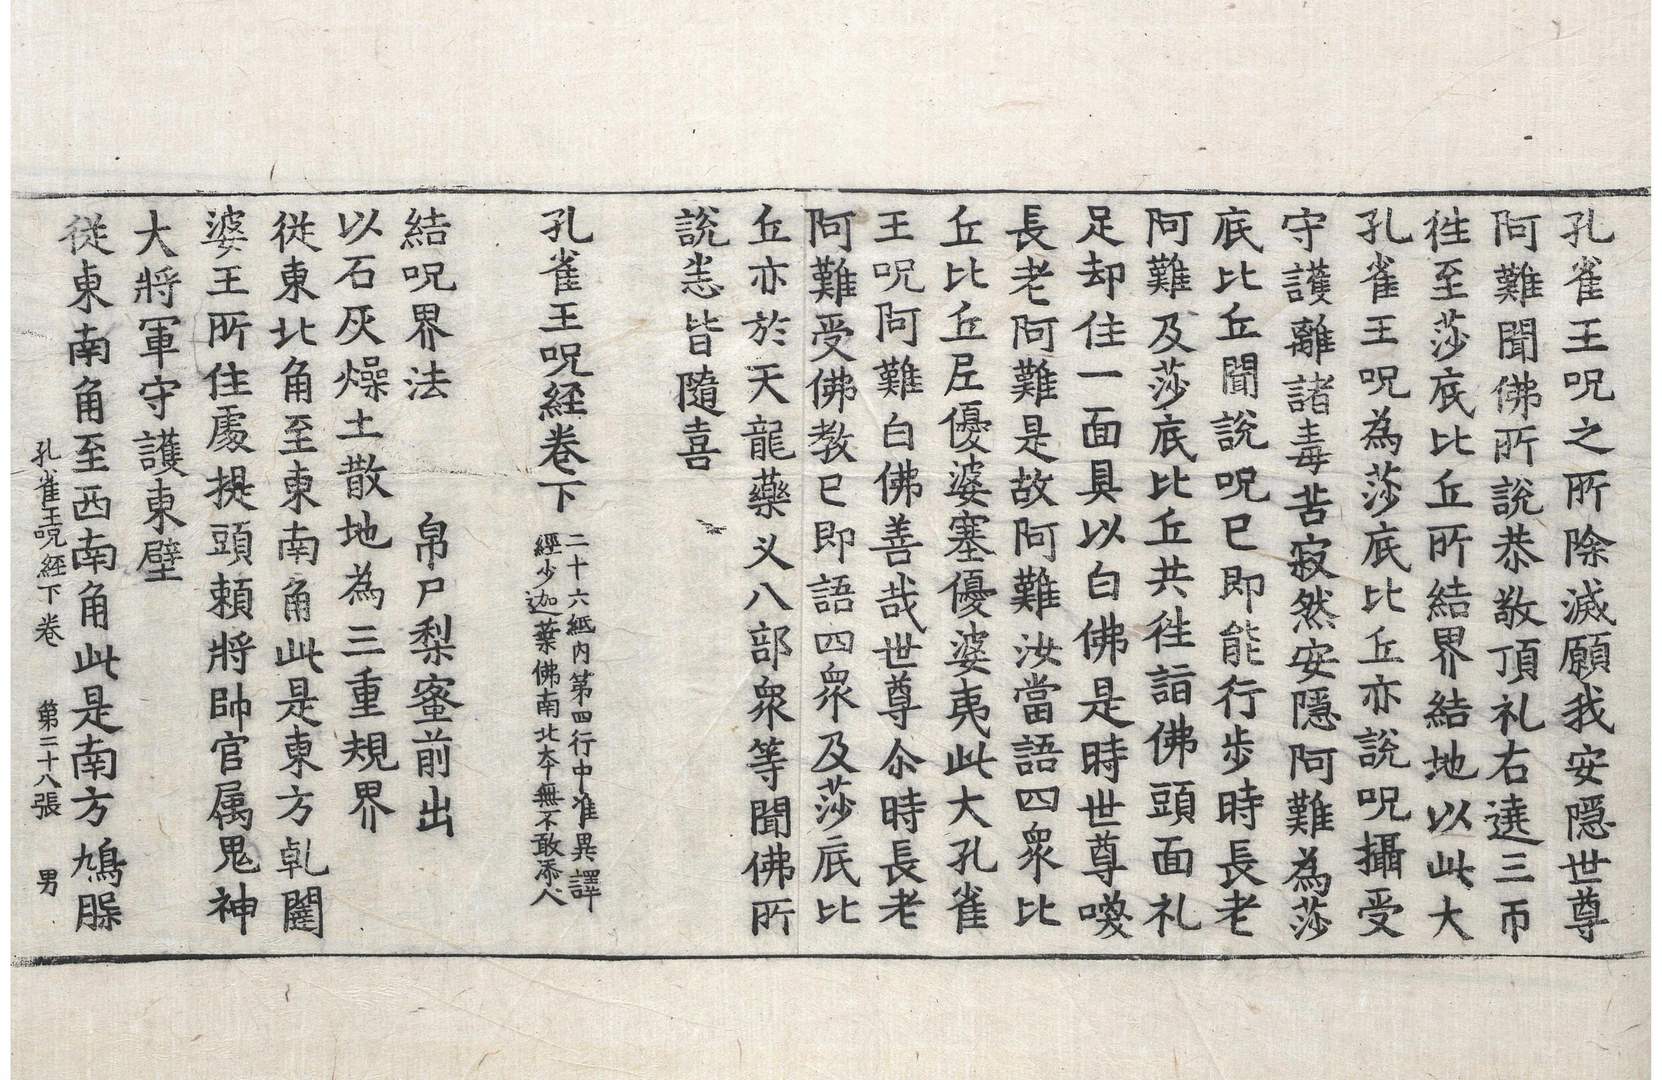 孔雀王呪之所除滅願我安隱世尊
阿難聞佛所說恭敬頂礼右遶三帀
徃至莎底比丘所結界結地以此大
孔雀王呪為莎底比丘亦說呪攝受
守護離諸毒苦寂然安隱阿難為莎
底比丘聞說呪已即能行步時長老
阿難及莎底比丘共徃詣佛頭面礼
足却住一面具以白佛是時世尊喚
長老阿難是故阿難汝當語四衆比
丘比丘尼優婆塞優婆夷此大孔雀
王呪阿難白佛善哉世尊尒時長老
阿難受佛教已即語四衆及莎底比
丘亦於天龍藥义八部衆等聞佛所
說恙皆隨喜
孔雀王呪經卷下
二十六紙內第四行中准異譯
經少迦葉佛南北夲無不敢添人
結呪界法 帛尸梨蜜前出
以石灰燥土散地為三重規界
従東北角至東南角此是東方乹闥
婆王所住處提頭頼將帥官属鬼神
大將軍守護東壁
従東南角至西南角此是南方鳩脲
孔雀王呪經下卷 第二十八張 男